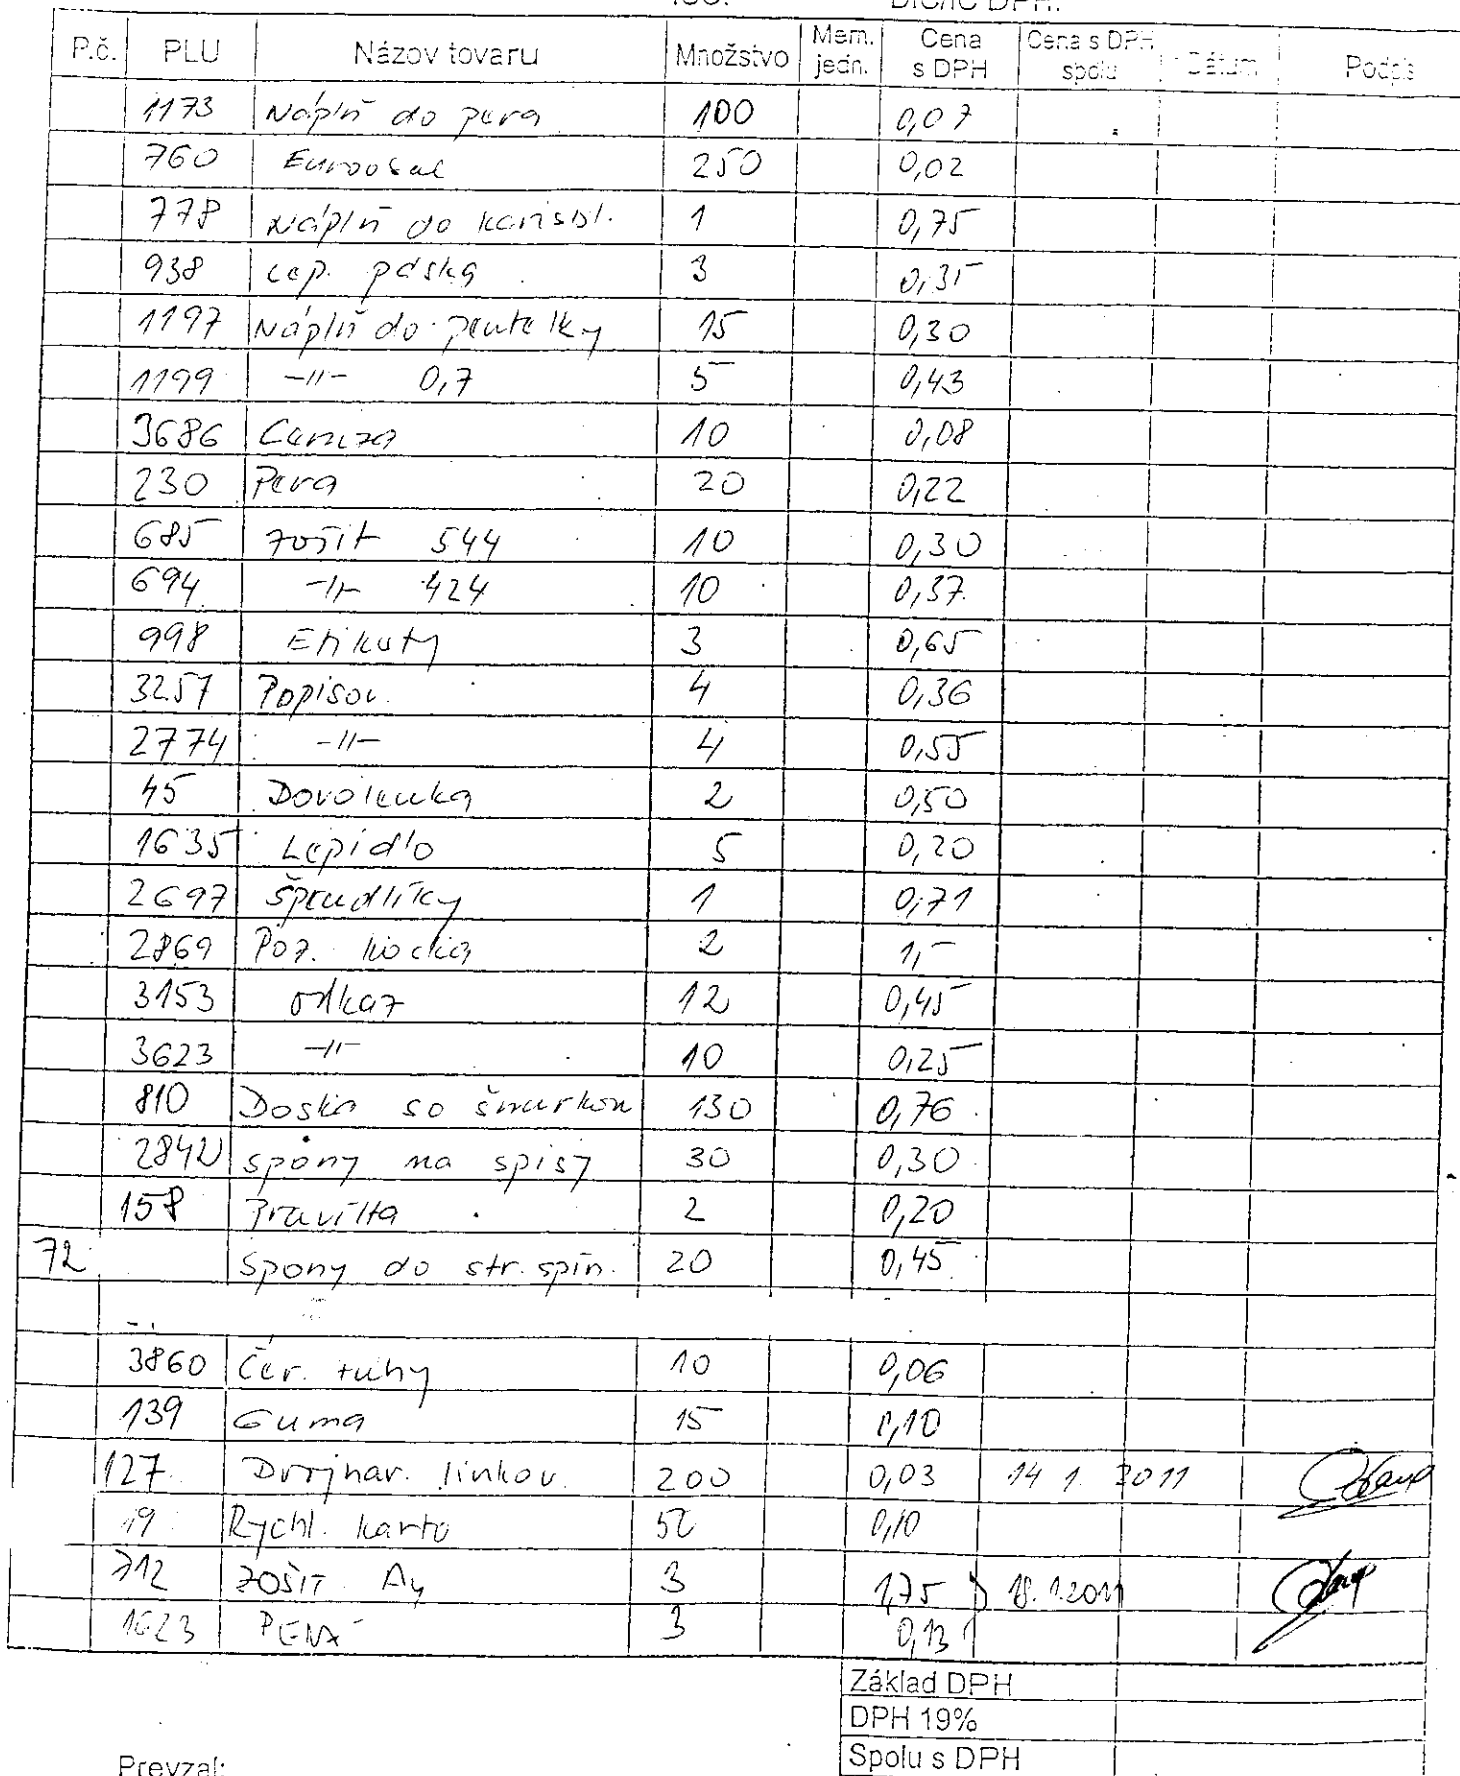 P.č. PLU Názov tovaru Množstvo Mem. jedn. Cena s DPH Cena s DPH spolu Dátum Podpis
1173 Náplň do pera 100 0,07
760 Euroobal 250 0,02
778 Náplň do karisbl. 1 0,75
938 Lep. páska 3 0,35
1197 Náplň do pentelky 15 0,30
1199 -11- 0,7 5 0,43
3686 Ceruza 10 0,08
230 Pera 20 0,22
685 Zošit 544 10 0,30
694 -11- 424 10 0,37
998 Etikety 3 0,65
3257 Popisov. 4 0,36
2774 -11- 4 0,55
45 Dovolenka 2 0,50
1635 Lepidlo 5 0,20
2697 Špendlíky 1 0,71
2869 Poz. kocka 2 1,-
3153 odkaz 12 0,45
3623 -11- 10 0,25
810 Doska so šnurkou 130 0,76
2842 spony na spisy 30 0,30
158 Pravítka 2 0,20
72 Spony do str. spin. 20 0,45
3860 Cer. tuhy 10 0,06
139 Guma 15 0,10
127 Dvojhar. linkov. 200 0,03 14 1. 2011
19 Rychl. karta 50 0,10
712 ZOŠIT A4 3 1,75 18.1.2011
1623 3 0,13
Základ DPH
DPH 19%
Spolu s DPH
Prevzal: